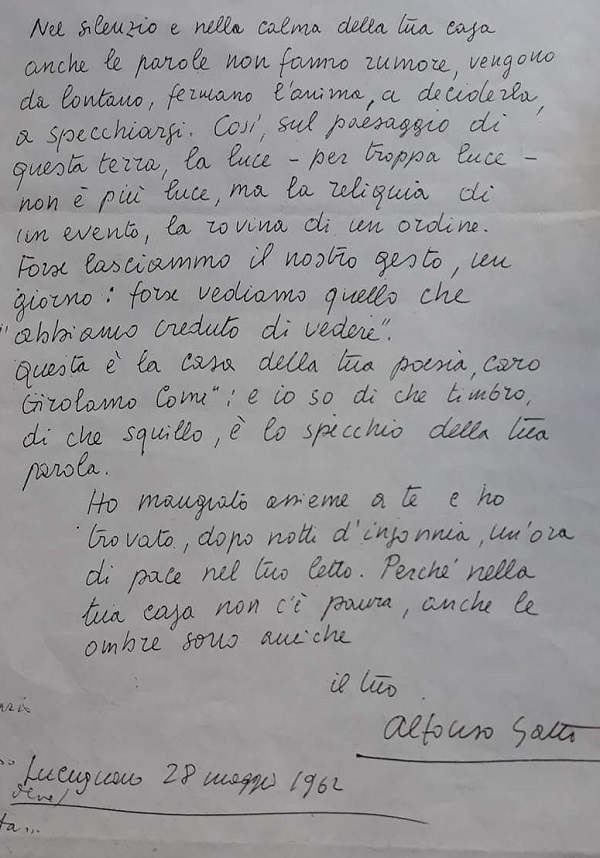 Nel silenzio e nella calma della tua casa
anche le parole non fanno rumore, vengono
da lontano, fermano l'anima, a deciderla,
a specchiarsi. Così, sul paesaggio di
questa terra, la luce - per troppa luce -
non è più luce, ma la reliquia di
un evento, la rovina di un ordine.
Forse lasciammo il nostro gesto, un
giorno: forse vediamo quello che
"abbiamo creduto di vedere".
Questa è la casa della tua poesia, caro
Girolamo Comi": e io so di che timbro,
di che squillo, è lo specchio della tua
parola.
Ho mangiato assieme a te e ho
trovato, dopo notti d'insonnia, un'ora
di pace nel tuo letto. Perché nella
tua casa non c'è paura, anche le
ombre sono amiche
il tuo
Alfonso Gatto
Lucugnano 28 maggio 1962
ta...